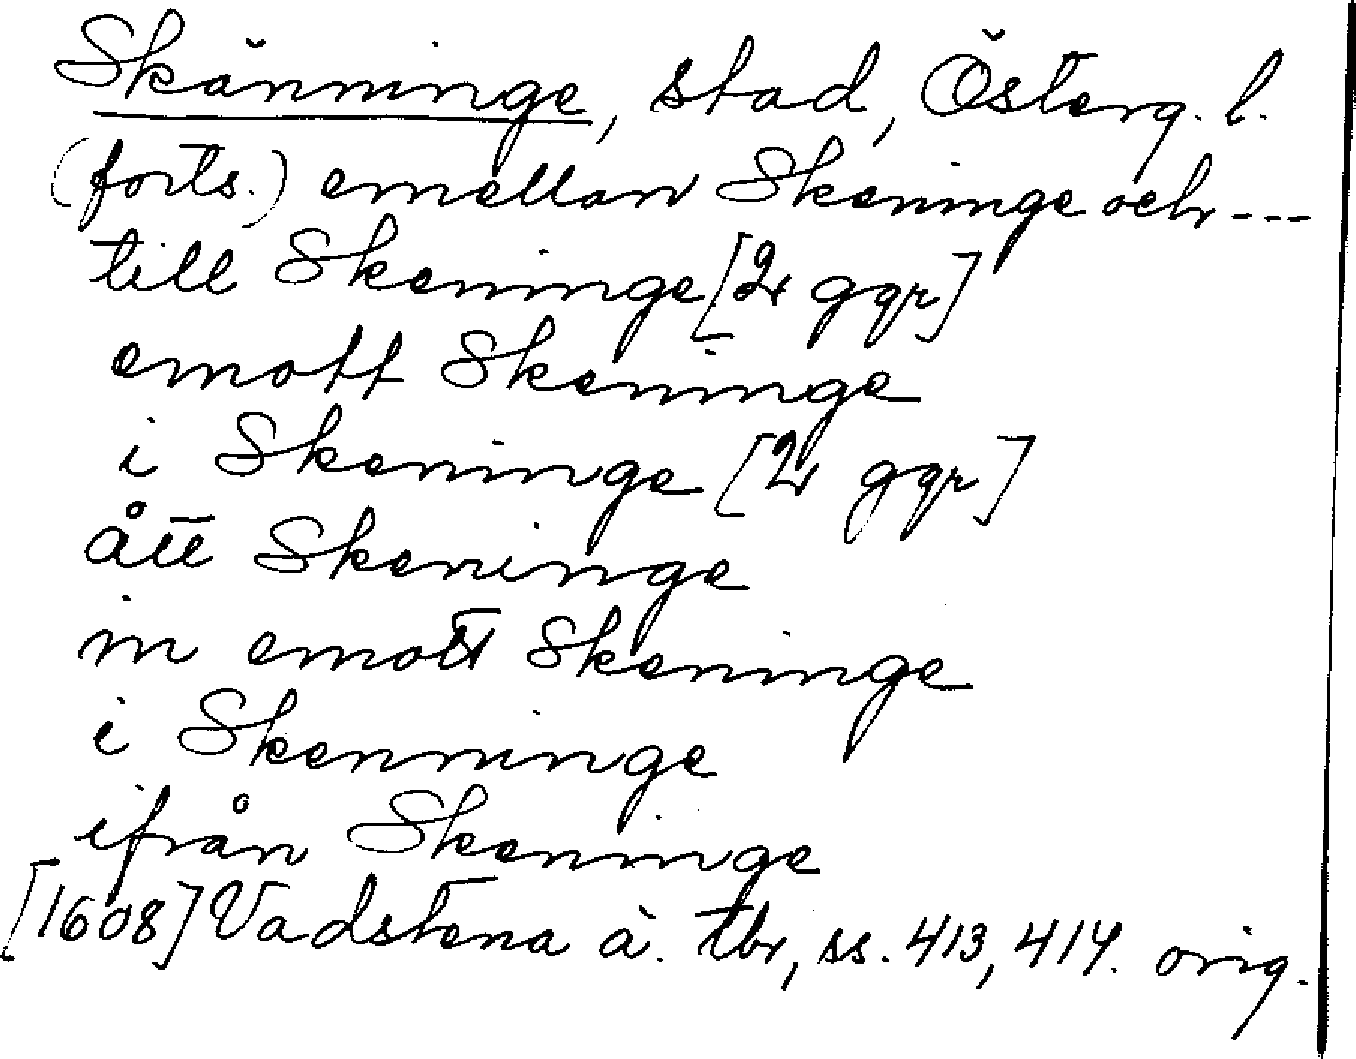 Skänninge, stad, Österg. l.
(forts.) emellan Skeninge och ---
till Skeninge [2 ggr]
emott Skeninge
i Skeninge [2 ggr]
ått Skeninge
in emott Skeninge
i Skenninge
ifrån Skeninge
[1608] Vadstena ä. tbr, ss. 413, 414. orig.